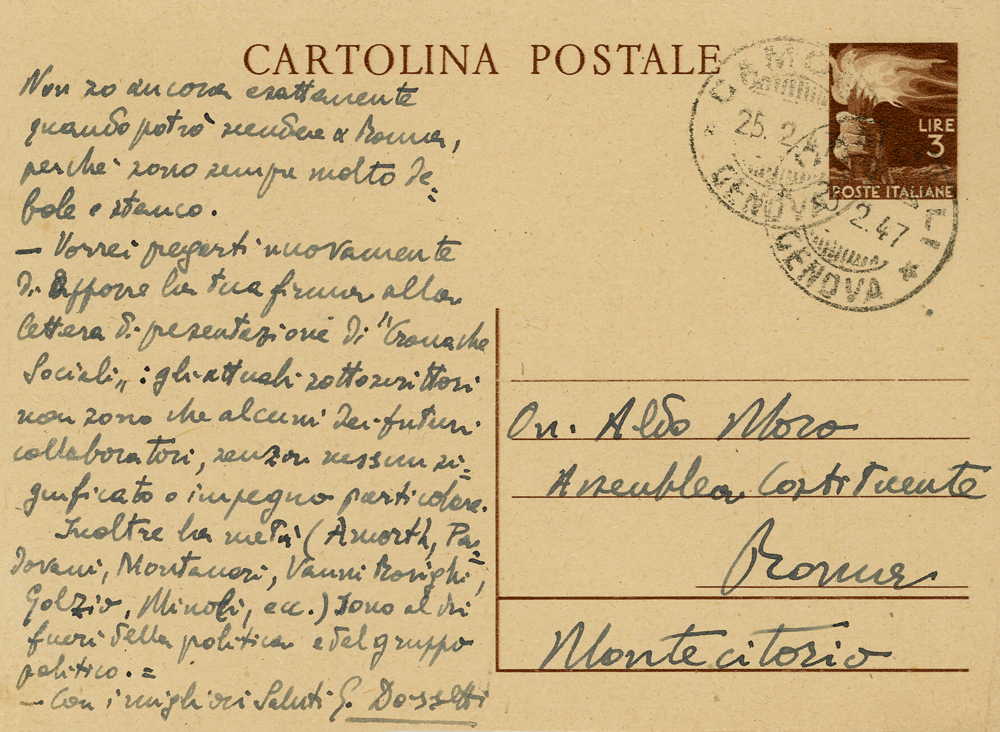 CARTOLINA POSTALE
Non so ancora esattamente
quando potrò scendere a Roma,
perché sono sempre molto de=
bole e stanco.
— Vorrei pregarti nuovamente
di apporre la tua firma alla
lettera di presentazione di "Cronache
Sociali„ : gli attuali sottoscrittori
non sono che alcuni dei futuri
collaboratori, senza nessun si=
gnificato o impegno particolare.
Inoltre la metà (Amorth, Pa=
dovani, Montanari, Vanni Rovighi,
Golzio, Minoli, ecc.) sono al di
fuori della politica e del gruppo
politico. =
— Con i migliori Saluti G. Dossetti
LIRE
3
POSTE ITALIANE
CAMOGLI
25. 2
GENOVA
2 47
GENOVA
On. Aldo Moro
Assemblea Costituente
Roma
Montecitorio